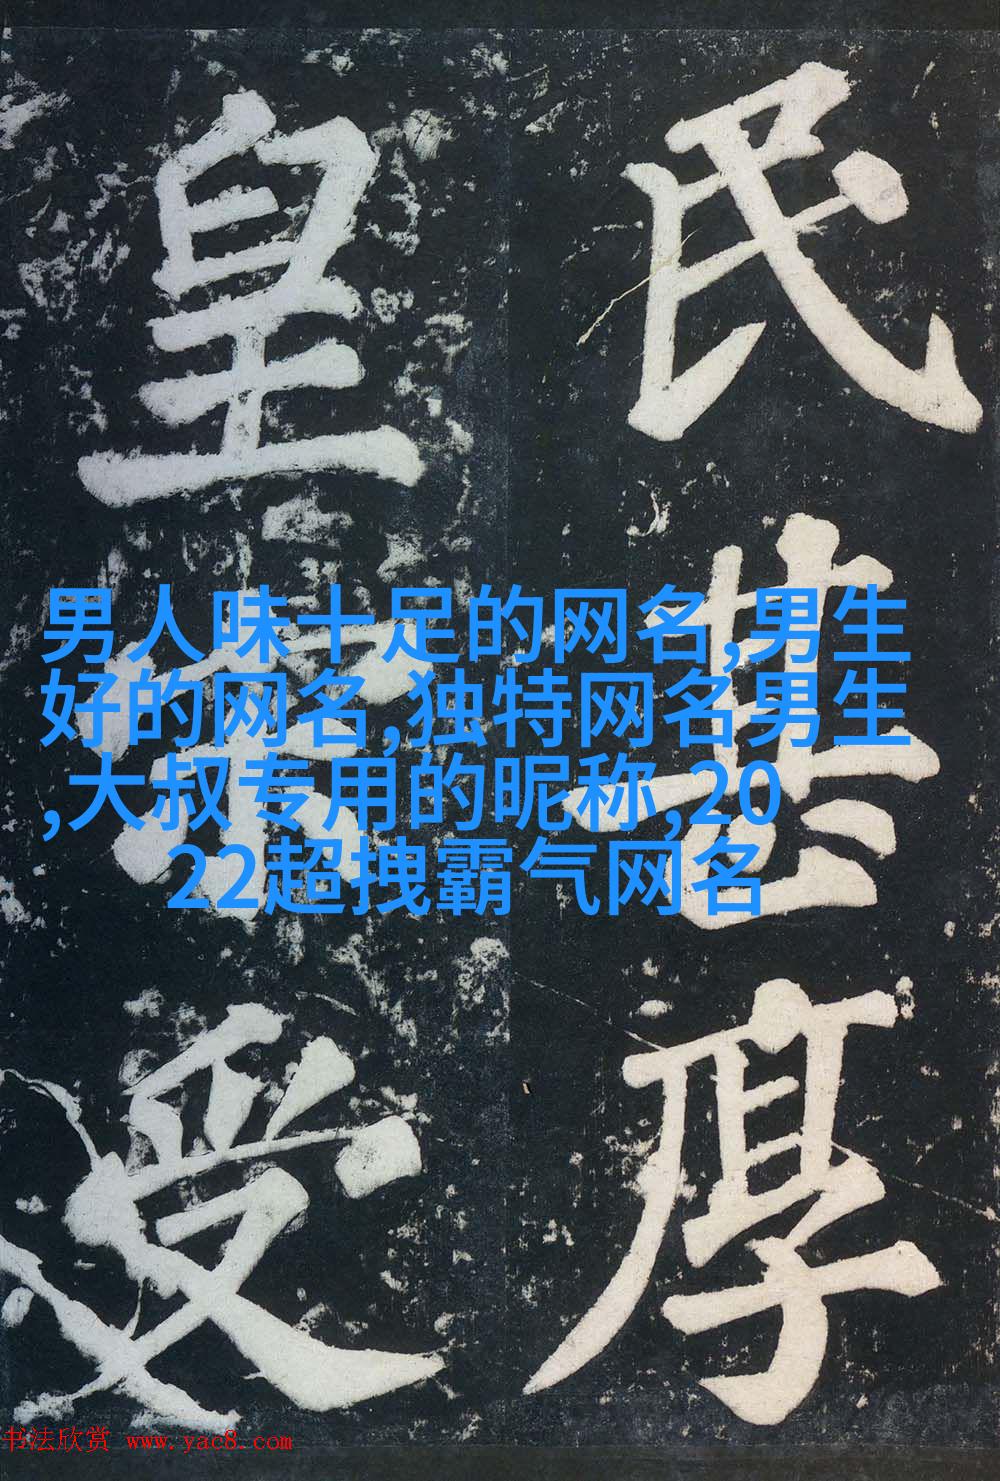 民甚厚
皇宋受
男人味十足的网名,男生
好的网名,独特网名男生
,大叔专用的昵称,20
22超拽霸气网名
书法欣赏 www.yac8.com